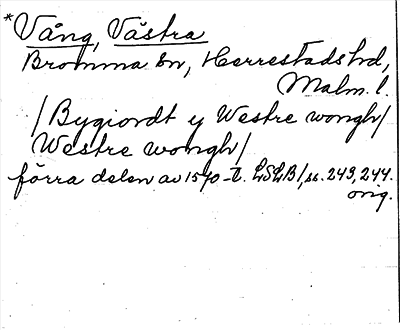 * Vång, Västra
Bromma sn, Herrestads hd,
Malm. l.
/ Bygiordt y Westre wongh/
Westre wongh/
förra delen av 1570-t. LSLB1, ss. 243, 244.
orig.